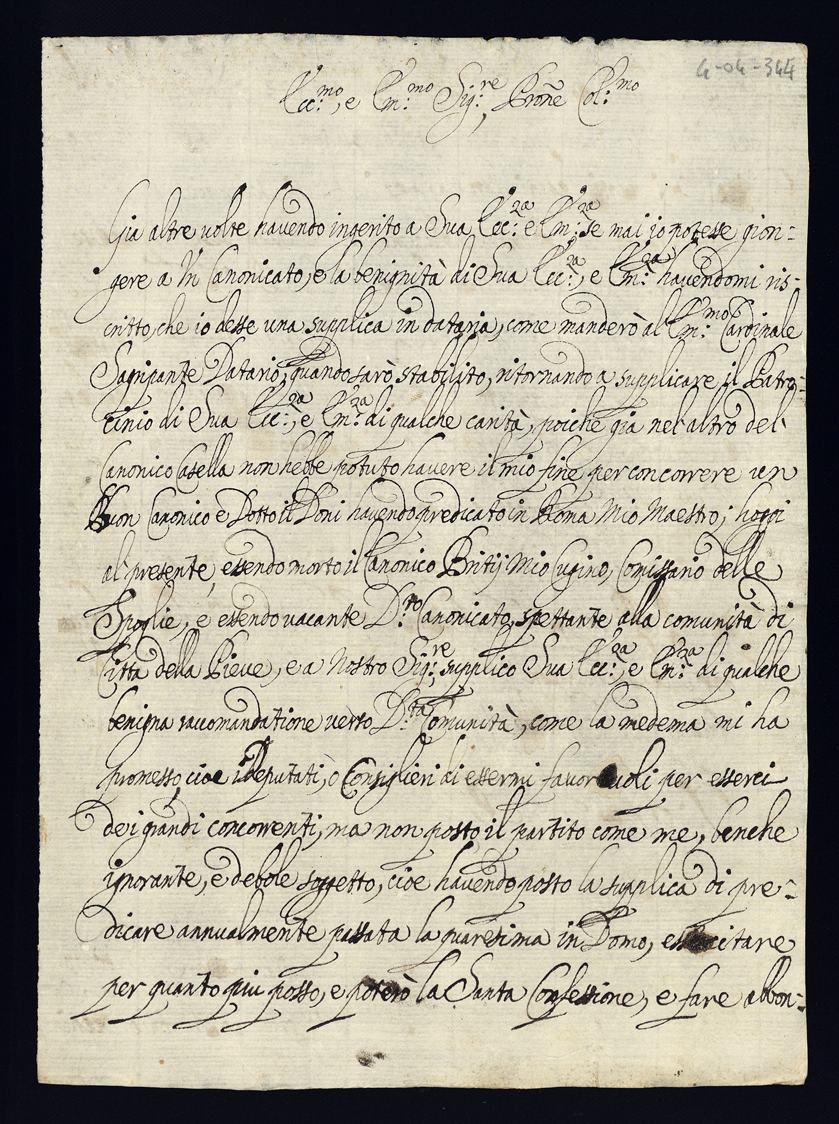 4-04-344
Ecc:mo, e Em:mo Sig:re Prone Col:mo
Gia altre volte havendo ingerito a Sua Ecc:za e Em:za se mai io potesse gion-
gere a Vn Canonicato, e la benignità di Sua Ecc:za, e Em:za havendomi ris-
critto, che io desse una supplica in dataria, come manderò al Em:mo Cardinale
Sagripante Datario, quando sarò stabilito, ritornando a supplicare il Patro-
cinio di Sua Ecc:za, e Em:za di qualche carità, poiche già nel altro del
Canonico Casella non hebbe potuto havere il mio fine per concorrere un
Buon Canonico e Dotto il Doni havendo predicato in Roma Mio Maestro; hoggi
al presente, essendo morto il Canonico Britij Mio Cugino, Comissario delle
Spoglie, e essendo vacante D:to Canonicato, spettante alla comunità di
Città della Pieve, e a Nostro Sig:re, supplico Sua Ecc:za, e Em:za di qualche
benigna racomandatione verso D:ta Comunità, come la medema mi ha
promesso, cioe i Deputati, o Consiglieri di essermi favorevoli per esserci
dei grandi concorrenti, ma non posto il partito come me, benche
ignorante, e debole soggetto, cioe havendo posto la supplica di pre-
dicare annualmente passata la quaresima in Domo, essercitare
per quanto piu posso, e poterò la Santa Confessione, e fare abbon-